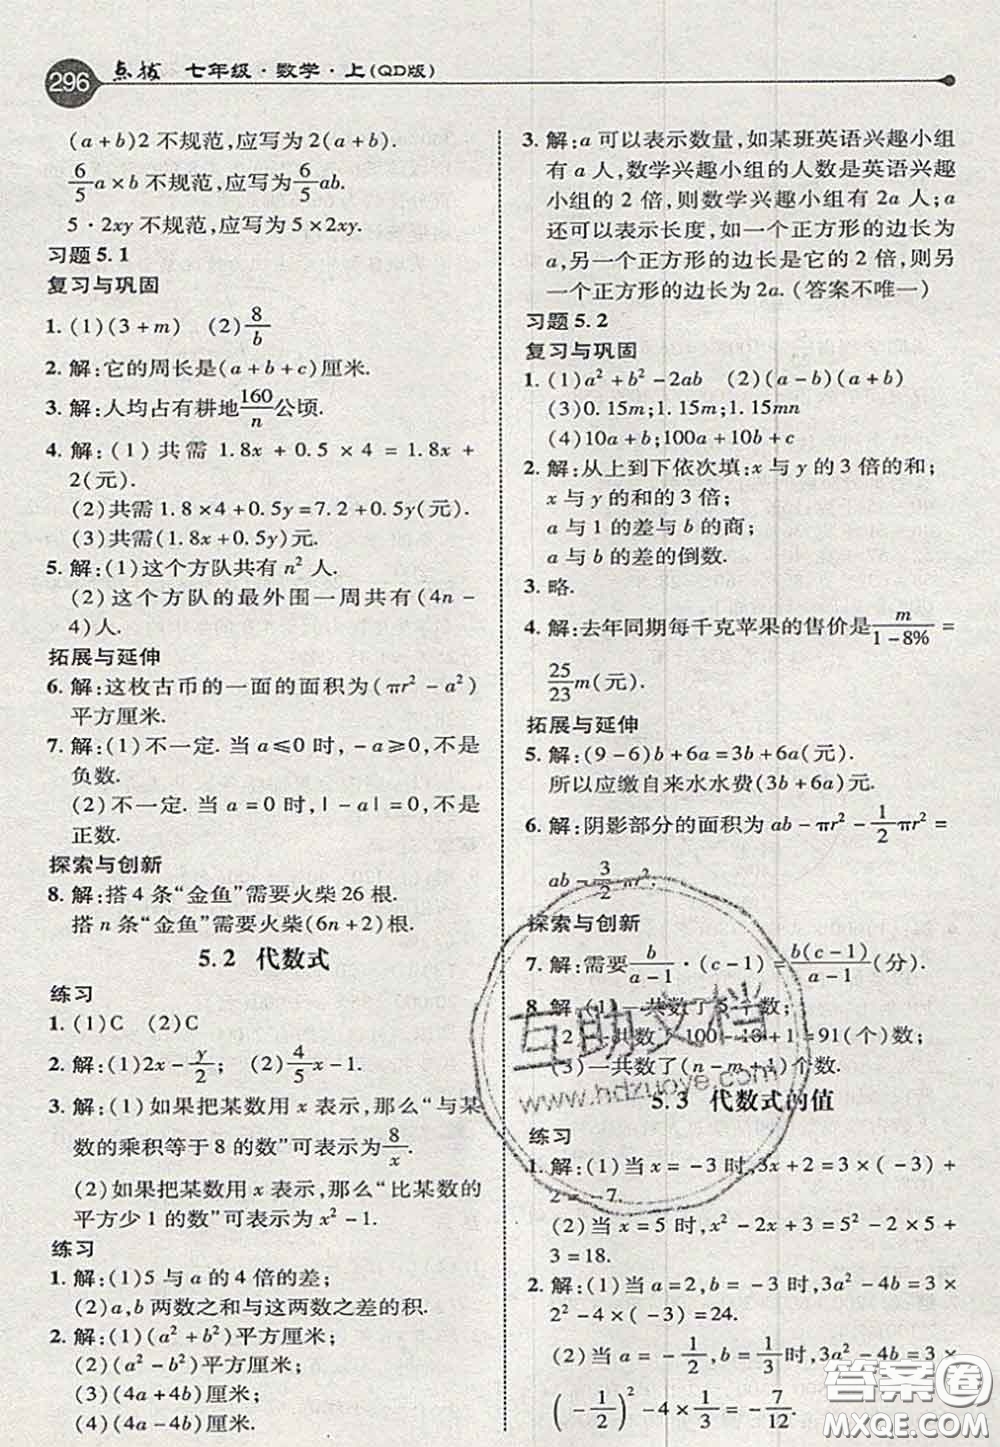 296 点拨 七年级·数学·上(QD版)
(a+b)2 不规范,应写为 2(a+b).
6/5 a×b 不规范,应写为 6/5 ab.
5·2xy 不规范,应写为 5×2xy.
习题 5.1
复习与巩固
1. (1)(3+m) (2) 8/b
2. 解:它的周长是(a+b+c)厘米.
3. 解:人均占有耕地 160/n 公顷.
4. 解:(1) 共需 1.8x+0.5×4=1.8x+
2(元).
(2)共需 1.8×4+0.5y=7.2+0.5y(元).
(3)共需(1.8x+0.5y)元.
5. 解:(1)这个方队共有 n² 人.
(2)这个方队的最外围一周共有(4n-
4)人.
拓展与延伸
6. 解:这枚古币的一面的面积为(πr²-a²)
平方厘米.
7. 解:(1)不一定. 当 a≤0 时,-a≥0,不是
负数.
(2)不一定. 当 a=0 时,|-a|=0,不是
正数.
探索与创新
8. 解:搭 4 条“金鱼”需要火柴 26 根.
搭 n 条“金鱼”需要火柴(6n+2)根.
5.2 代数式
练习
1. (1)C (2)C
2. 解:(1)2x-y/2; (2) 4/5 x-1.
3. 解:(1)如果把某数用 x 表示,那么“与某
数的乘积等于 8 的数”可表示为 8/x.
(2)如果把某数用 x 表示,那么“比某数的
平方少 1 的数”可表示为 x²-1.
练习
1. 解:(1)5 与 a 的 4 倍的差;
(2)a,b 两数之和与这两数之差的积.
2. 解:(1)(a²+b²)平方厘米;
(2)(a²-b²)平方厘米;
(3)(4a+4b)厘米;
(4)(4a-4b)厘米.
3. 解:a 可以表示数量,如某班英语兴趣小组
有 a 人,数学兴趣小组的人数是英语兴趣
小组的 2 倍,则数学兴趣小组有 2a 人;a
还可以表示长度,如一个正方形的边长为
a,另一个正方形的边长是它的 2 倍,则另
一个正方形的边长为 2a.(答案不唯一)
习题 5.2
复习与巩固
1. (1)a²+b²-2ab (2)(a-b)(a+b)
(3)0.15m;1.15m;1.15mn
(4)10a+b;100a+10b+c
2. 解:从上到下依次填:x 与 y 的 3 倍的和;
x 与 y 的和的 3 倍;
a 与 1 的差与 b 的商;
a 与 b 的差的倒数.
3. 略.
4. 解:去年同期每千克苹果的售价是 m/(1-8%) =
25/23 m(元).
拓展与延伸
5. 解:(9-6)b+6a=3b+6a(元).
所以应缴自来水水费(3b+6a)元.
6. 解:阴影部分的面积为 ab-πr²-1/2 πr²=
ab-3/2 πr².
探索与创新
7. 解:需要 b/(a-1)·(c-1)=b(c-1)/(a-1)(分).
8. 解:(1)一共数了 5 个数;
(2)一共数了 100-10+1=91(个)数;
(3)一共数了(n-m+1)个数.
5.3 代数式的值
练习
1. 解:(1)当 x=-3 时,3x+2=3×(-3)+
2=-7.
(2)当 x=5 时,x²-2x+3=5²-2×5+
3=18.
2. 解:(1)当 a=2,b=-3 时,3a²-4b=3×
2²-4×(-3)=24.
(2)当 a=-1/2,b=1/3 时,3a²-4b=3×
(-1/2)²-4×1/3=-7/12.
互助文档
www.hdzuoye.com
答案圈
MXQE.COM